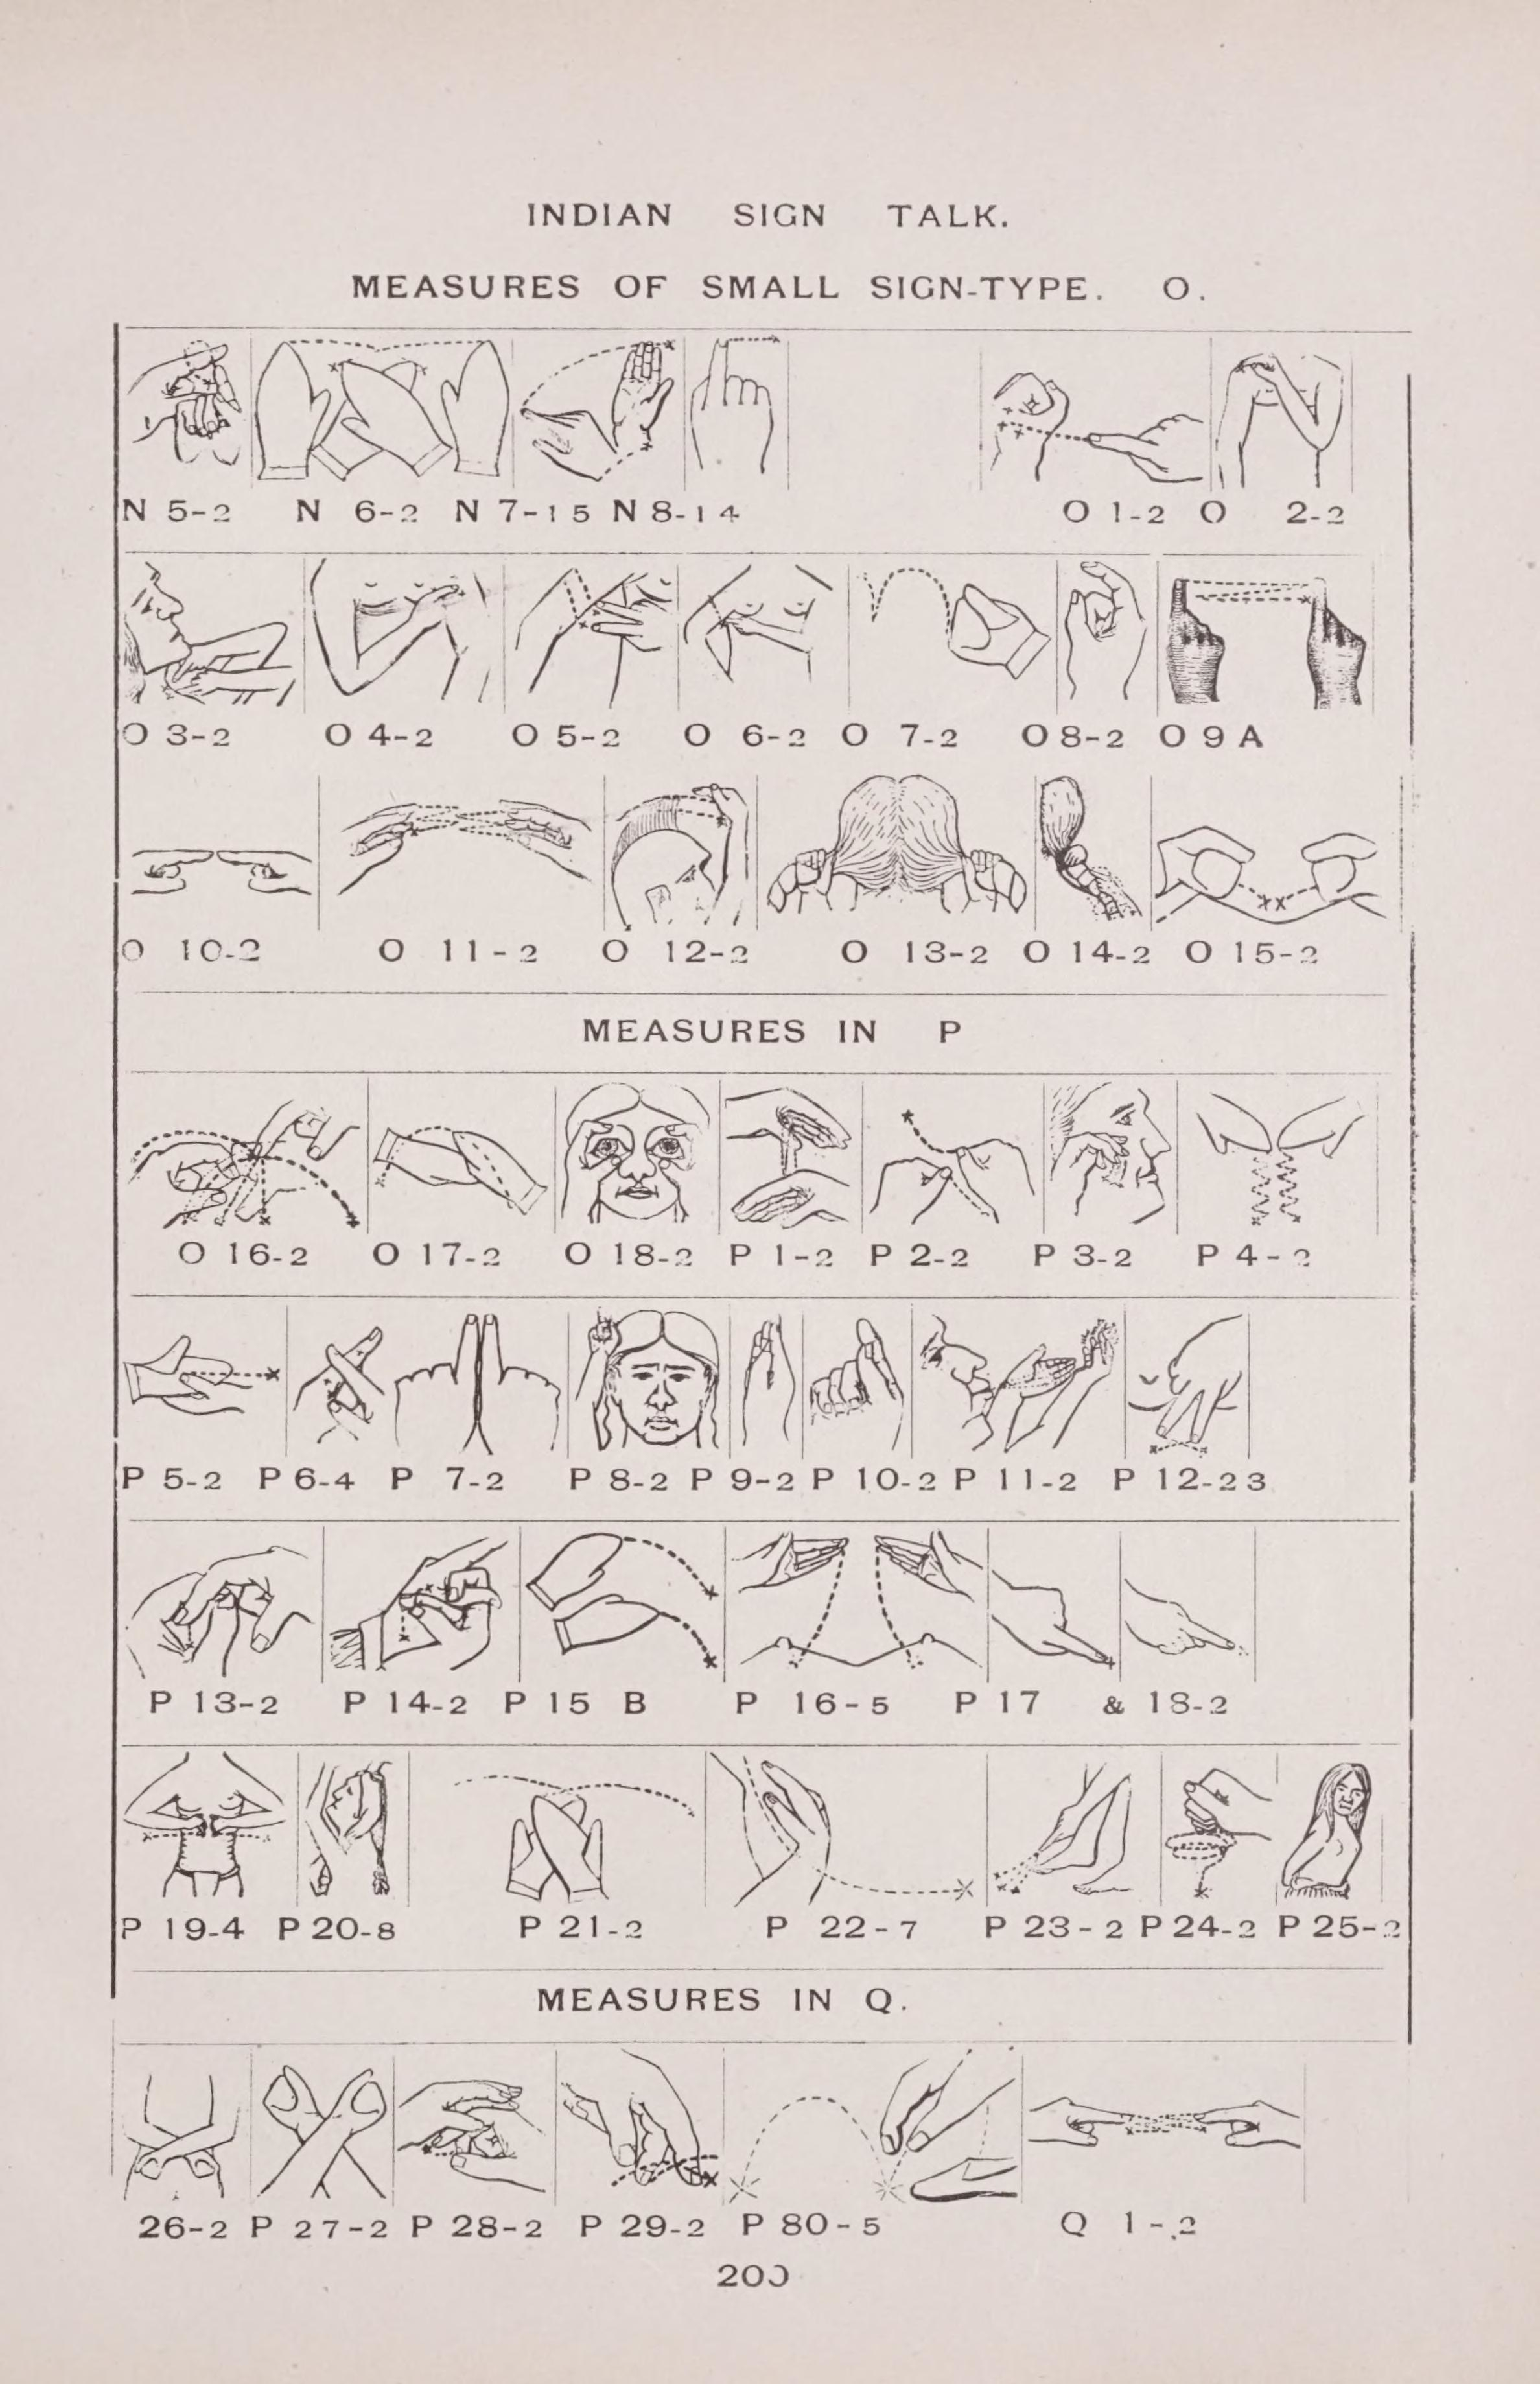 INDIAN SIGN TALK.
MEASURES OF SMALL SIGN-TYPE. O.
N 5-2 N 6-2 N 7-15 N 8-14 O 1-2 O 2-2
O 3-2 O 4-2 O 5-2 O 6-2 O 7-2 O 8-2 O 9 A
O 10-2 O 11-2 O 12-2 O 13-2 O 14-2 O 15-2
MEASURES IN P
O 16-2 O 17-2 O 18-2 P 1-2 P 2-2 P 3-2 P 4-2
P 5-2 P 6-4 P 7-2 P 8-2 P 9-2 P 10-2 P 11-2 P 12-23
P 13-2 P 14-2 P 15 B P 16-5 P 17 & 18-2
P 19-4 P 20-8 P 21-2 P 22-7 P 23-2 P 24-2 P 25-2
MEASURES IN Q.
26-2 P 27-2 P 28-2 P 29-2 P 80-5 Q 1-2
200